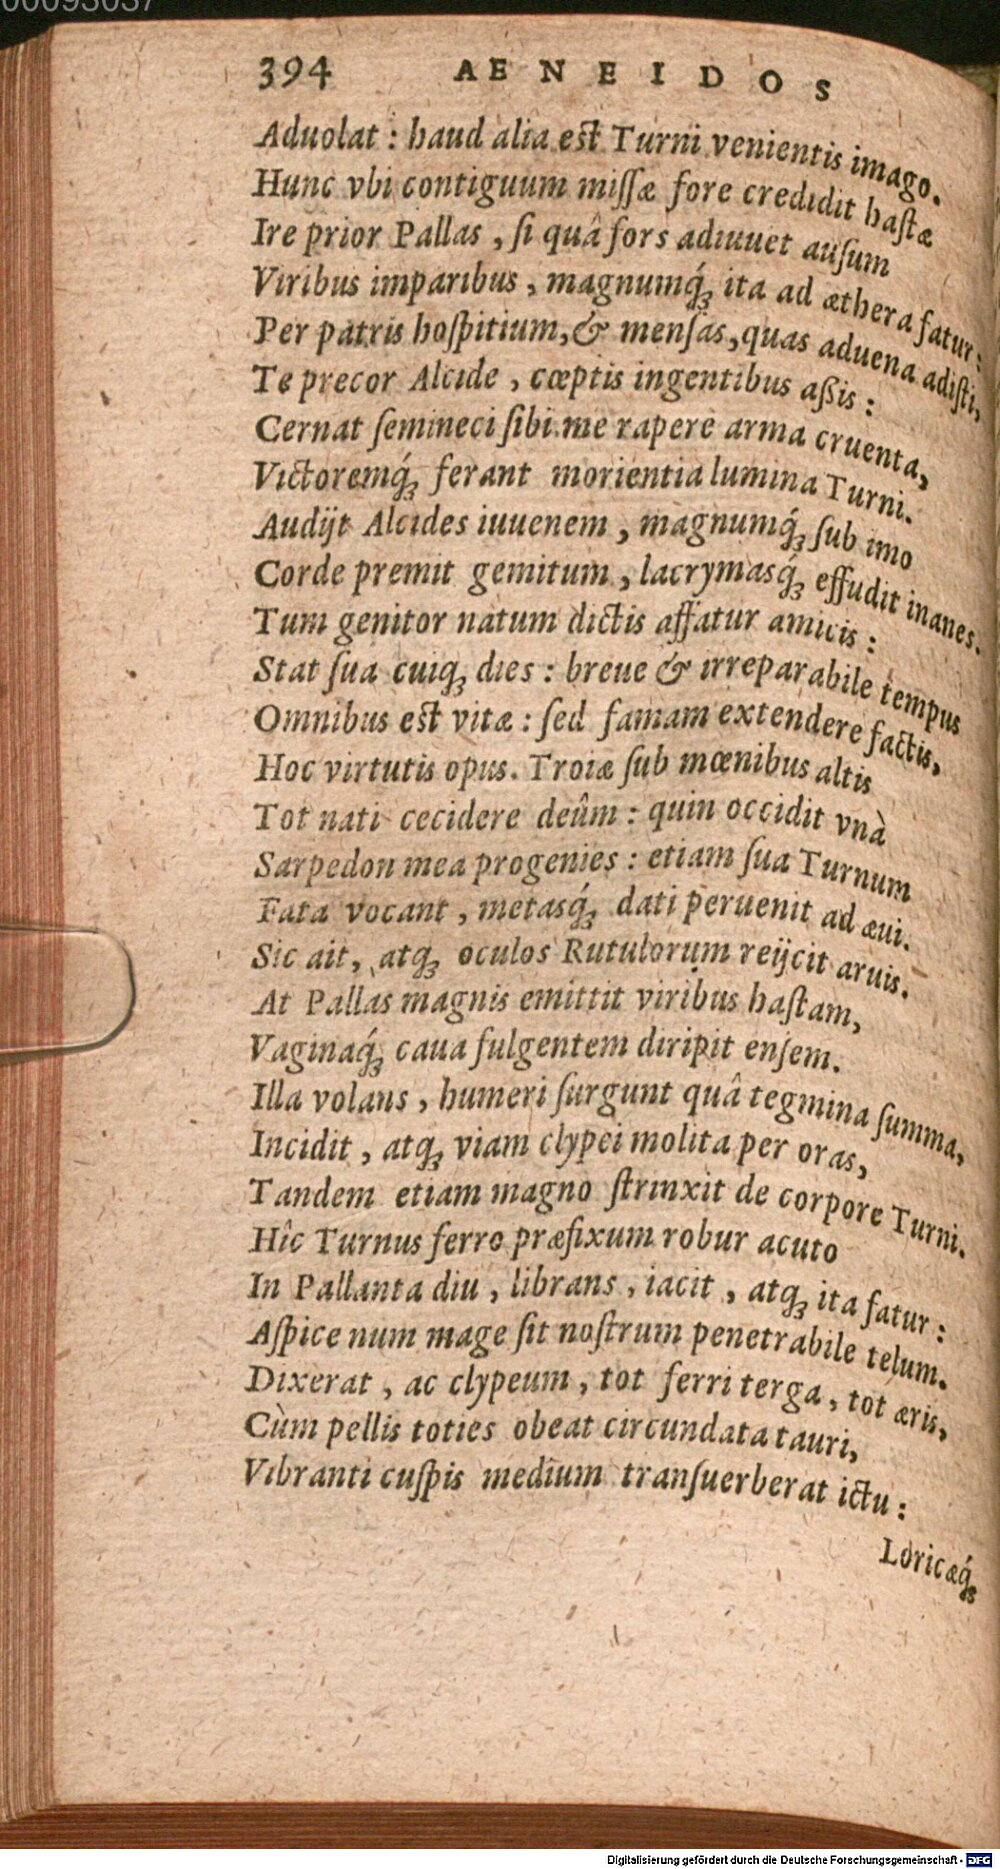 00093037
394 AENEIDOS
Aduolat : haud alia est Turni venientis imago.
Hunc vbi contiguum missæ fore credidit hastæ
Ire prior Pallas , si quâ fors adiuuet ausum
Viribus imparibus , magnumq́; ita ad æthera fatur :
Per patris hospitium, & mensas, quas aduena adisti,
Te precor Alcide , cœptis ingentibus aßis :
Cernat semineci sibi me rapere arma cruenta,
Victoremq́; ferant morientia lumina Turni.
Audijt Alcides iuuenem , magnumq́; sub imo
Corde premit gemitum , lacrymasq́; effudit inanes.
Tum genitor natum dictis affatur amicis :
Stat sua cuiq; dies : breue & irreparabile tempus
Omnibus est vitæ : sed famam extendere factis,
Hoc virtutis opus. Troiæ sub mœnibus altis
Tot nati cecidere deûm : quin occidit vnà
Sarpedon mea progenies : etiam sua Turnum
Fata vocant , metasq́; dati peruenit ad æui.
Sic ait, atq; oculos Rutulorum reijcit aruis.
At Pallas magnis emittit viribus hastam,
Vaginaq́; caua fulgentem diripit ensem.
Illa volans , humeri surgunt quâ tegmina summa,
Incidit , atq; viam clypei molita per oras,
Tandem etiam magno strinxit de corpore Turni.
Hîc Turnus ferro præfixum robur acuto
In Pallanta diu , librans , iacit , atq; ita fatur :
Aspice num mage sit nostrum penetrabile telum.
Dixerat , ac clypeum , tot ferri terga , tot æris,
Cùm pellis toties obeat circundata tauri,
Vibranti cuspis medium transuerberat ictu :
Loricæq́;
Digitalisierung gefördert durch die Deutsche Forschungsgemeinschaft - DFG